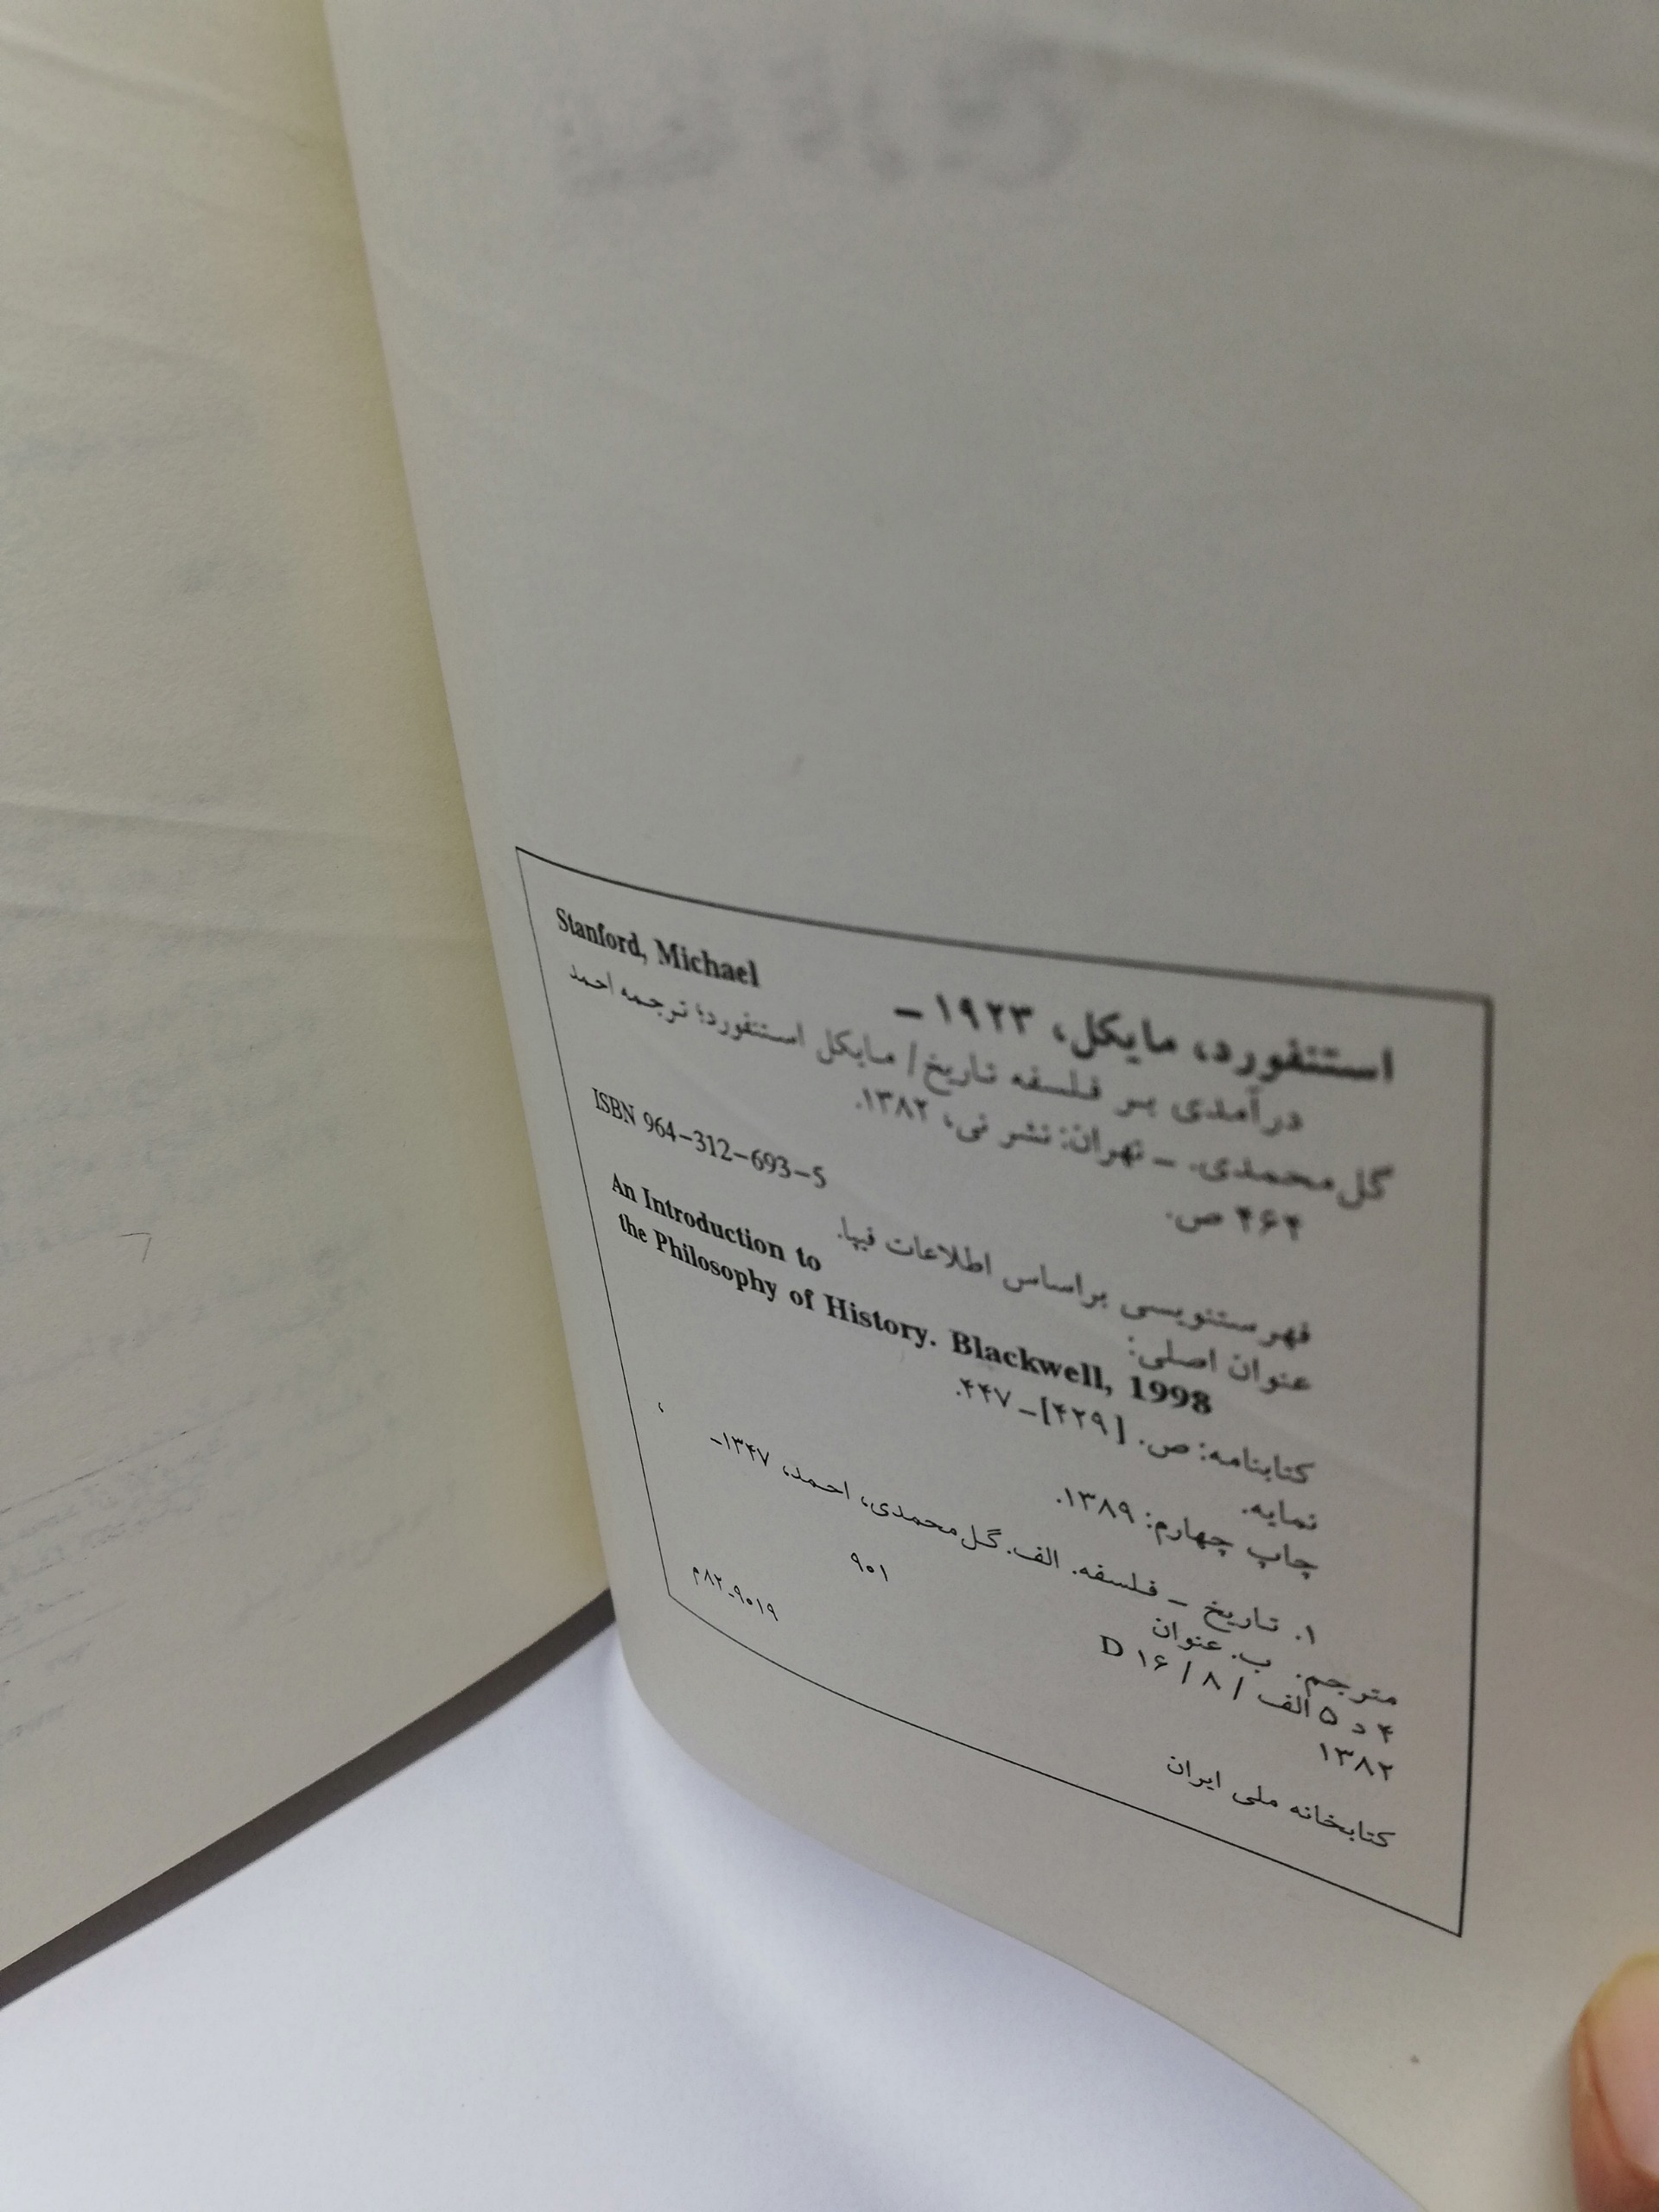 استنفورد، مایکل، ۱۹۲۳ – Stanford, Michael
درآمدی بر فلسفه تاریخ/ مایکل استنفورد؛ ترجمه احمد
گل‌محمدی. – تهران: نشر نی، ۱۳۸۲.
۴۶۴ ص. ISBN 964–312–693–5
فهرستنویسی براساس اطلاعات فیپا.
عنوان اصلی: An Introduction to
the Philosophy of History. Blackwell, 1998
کتابنامه: ص. [۴۲۹] – ۴۴۷.
نمایه.
چاپ چهارم: ۱۳۸۹.
۱. تاریخ – فلسفه. الف. گل‌محمدی، احمد، ۱۳۴۷– ،
مترجم. ب. عنوان
۴ د ۵ الف / ۸ / ۱۶ D ۹۰۱
۱۳۸۲
کتابخانه ملی ایران ۹۰۱۹–۸۲م